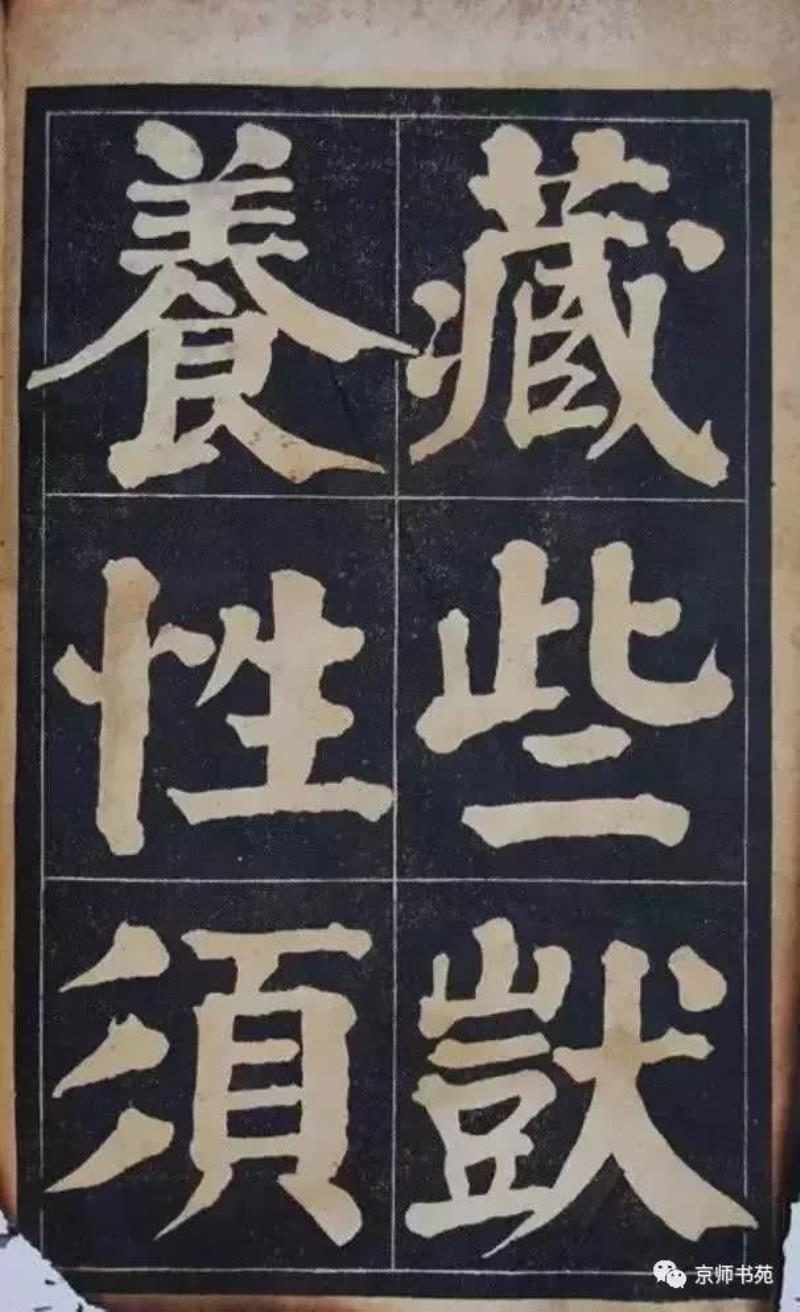 藏些獃
養性須
京师书苑